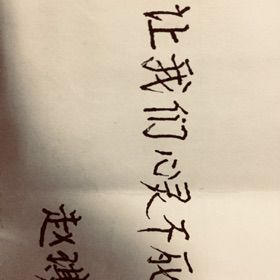 让我们心灵不死
赵